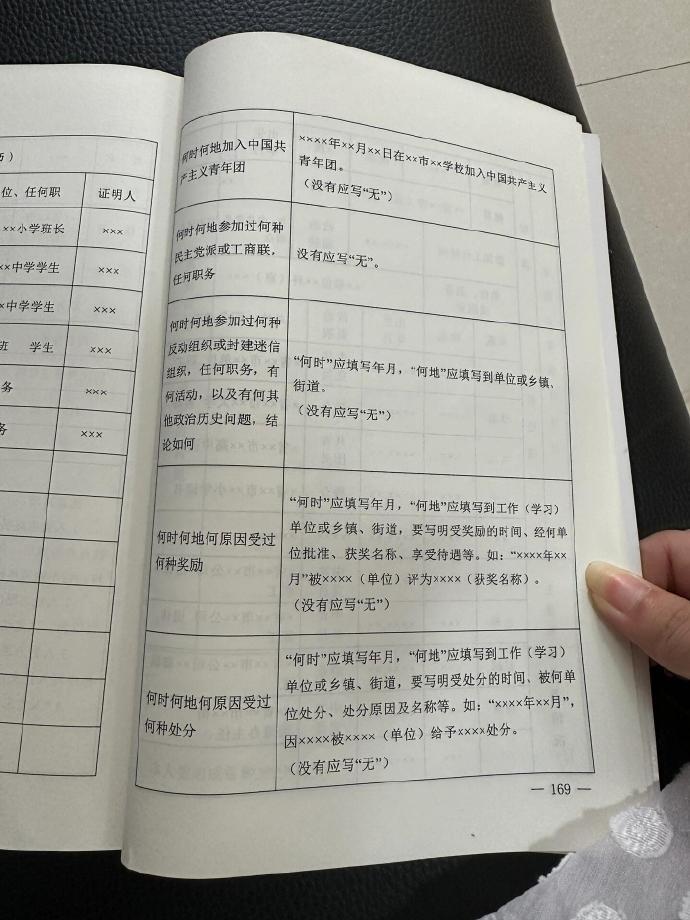 历）
位、任何职 证明人
××小学班长 ×××
××中学学生 ×××
×中学学生 ×××
班 学生 ×××
务 ×××
务 ×××
何时何地加入中国共
产主义青年团
××××年××月××日在××市××学校加入中国共产主义
青年团。
（没有应写“无”）
何时何地参加过何种
民主党派或工商联，
任何职务
没有应写“无”。
何时何地参加过何种
反动组织或封建迷信
组织，任何职务，有
何活动，以及有何其
他政治历史问题，结
论如何
“何时”应填写年月，“何地”应填写到单位或乡镇、
街道。
（没有应写“无”）
何时何地何原因受过
何种奖励
“何时”应填写年月，“何地”应填写到工作（学习）
单位或乡镇、街道，要写明受奖励的时间、经何单
位批准、获奖名称、享受待遇等。如：“××××年××
月”被××××（单位）评为××××（获奖名称）。
（没有应写“无”）
何时何地何原因受过
何种处分
“何时”应填写年月，“何地”应填写到工作（学习）
单位或乡镇、街道，要写明受处分的时间、被何单
位处分、处分原因及名称等。如：“××××年××月”，
因××××被××××（单位）给予××××处分。
（没有应写“无”）
— 169 —